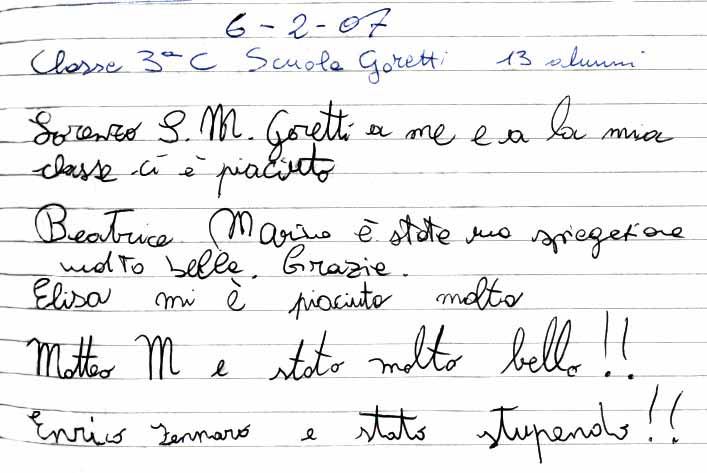 6-2-07
Classe 3ª C Scuola Goretti 13 alunni
Lorenzo S. M. Goretti a me e a la mia
classe ci è piaciuto
Beatrice Marino è stata una spiegazione
molto bella. Grazie.
Elisa mi è piaciuto molto
Matteo M e stato molto bello!!
Enrico Zennaro e stato stupendo!!